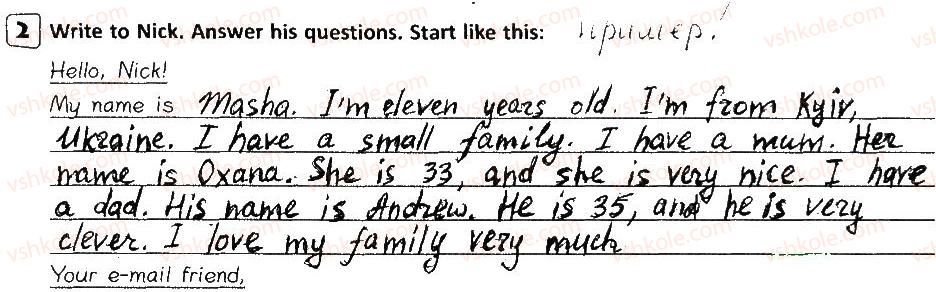 2 Write to Nick. Answer his questions. Start like this: пример!
Hello, Nick!
My name is Masha. I'm eleven years old. I'm from Kyiv,
Ukraine. I have a small family. I have a mum. Her
name is Oxana. She is 33, and she is very nice. I have
a dad. His name is Andrew. He is 35, and he is very
clever. I love my family very much
Your e-mail friend,